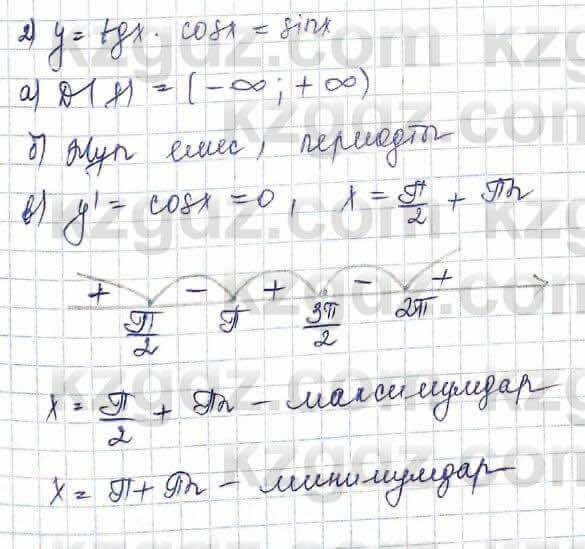 2) y = tgx · cosx = sinx
а) D(f) = (-∞; +∞)
б) Жұп емес, периодты
в) y' = cosx = 0, x = π/2 + πn
+ − + − +
π/2 π 3π/2 2π
x = π/2 + πn – максимумдар
x = π + πn – минимумдар
kzgdz.com